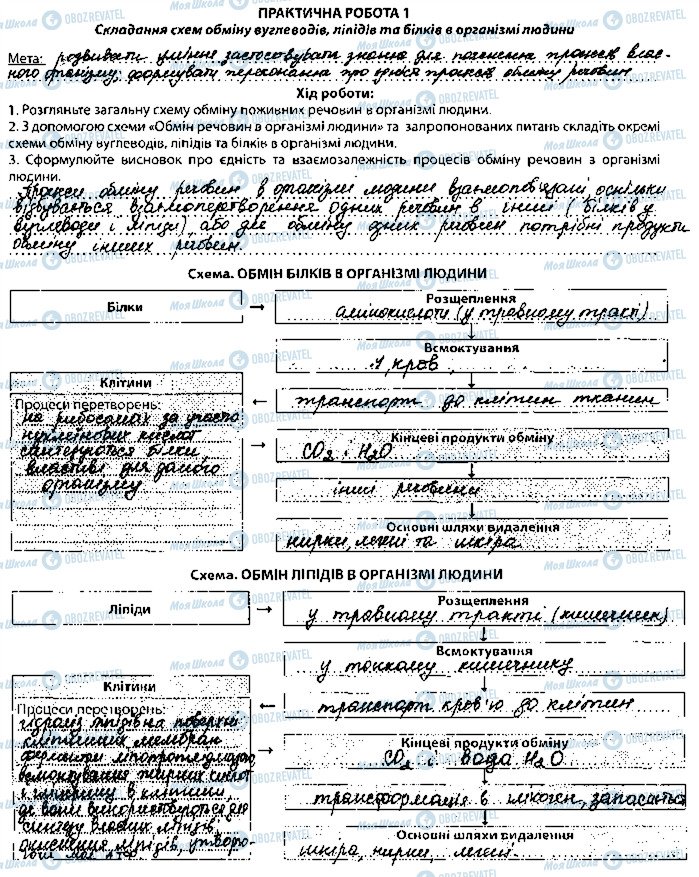 ПРАКТИЧНА РОБОТА 1
Складання схем обміну вуглеводів, ліпідів та білків в організмі людини
Мета: розвивати уміння застосовувати знання для пояснення процесів влас-
ного організму; формувати переконання про єдність процесів обміну речовин
Хід роботи:
1. Розгляньте загальну схему обміну поживних речовин в організмі людини.
2. З допомогою схеми «Обмін речовин в організмі людини» та запропонованих питань складіть окремі
схеми обміну вуглеводів, ліпідів та білків в організмі людини.
3. Сформулюйте висновок про єдність та взаємозалежність процесів обміну речовин з організмі
людини.
Процеси обміну речовин в організмі людини взаємопов'язані, оскільки
відбувається взаємоперетворення одних речовин в інші (білків у
вуглеводи і ліпіди), або для обміну одних речовин потрібні продукти
обміну інших речовин.
Схема. ОБМІН БІЛКІВ В ОРГАНІЗМІ ЛЮДИНИ
Білки
Розщеплення
амінокислоти (у травному тракті)
Всмоктування
у кров
Клітини
Процеси перетворень:
на рибосомах за участю
нуклеїнових кислот
синтезуються білки,
властиві для даного
організму
транспорт до клітин тканин
Кінцеві продукти обміну
CO2 і H2O
інші речовини
Основні шляхи видалення
нирки, легені та шкіра
Схема. ОБМІН ЛІПІДІВ В ОРГАНІЗМІ ЛЮДИНИ
Ліпіди
Розщеплення
у травному тракті (кишечник)
Всмоктування
у тонкому кишечнику
Клітини
Процеси перетворень:
гідроліз ліпідів на поверхні
клітинних мембран
ферментом ліпопротеїдліпазою
всмоктування жирних кислот
і гліцерину в клітини,
де вони використовуються для
синтезу власних ліпідів,
окиснення ліпідів, утворю-
АТФ
транспорт кров'ю до клітин
Кінцеві продукти обміну
CO2 і вода H2O
трансформація в глікоген, запасається
Основні шляхи видалення
шкіра, нирки, легені.